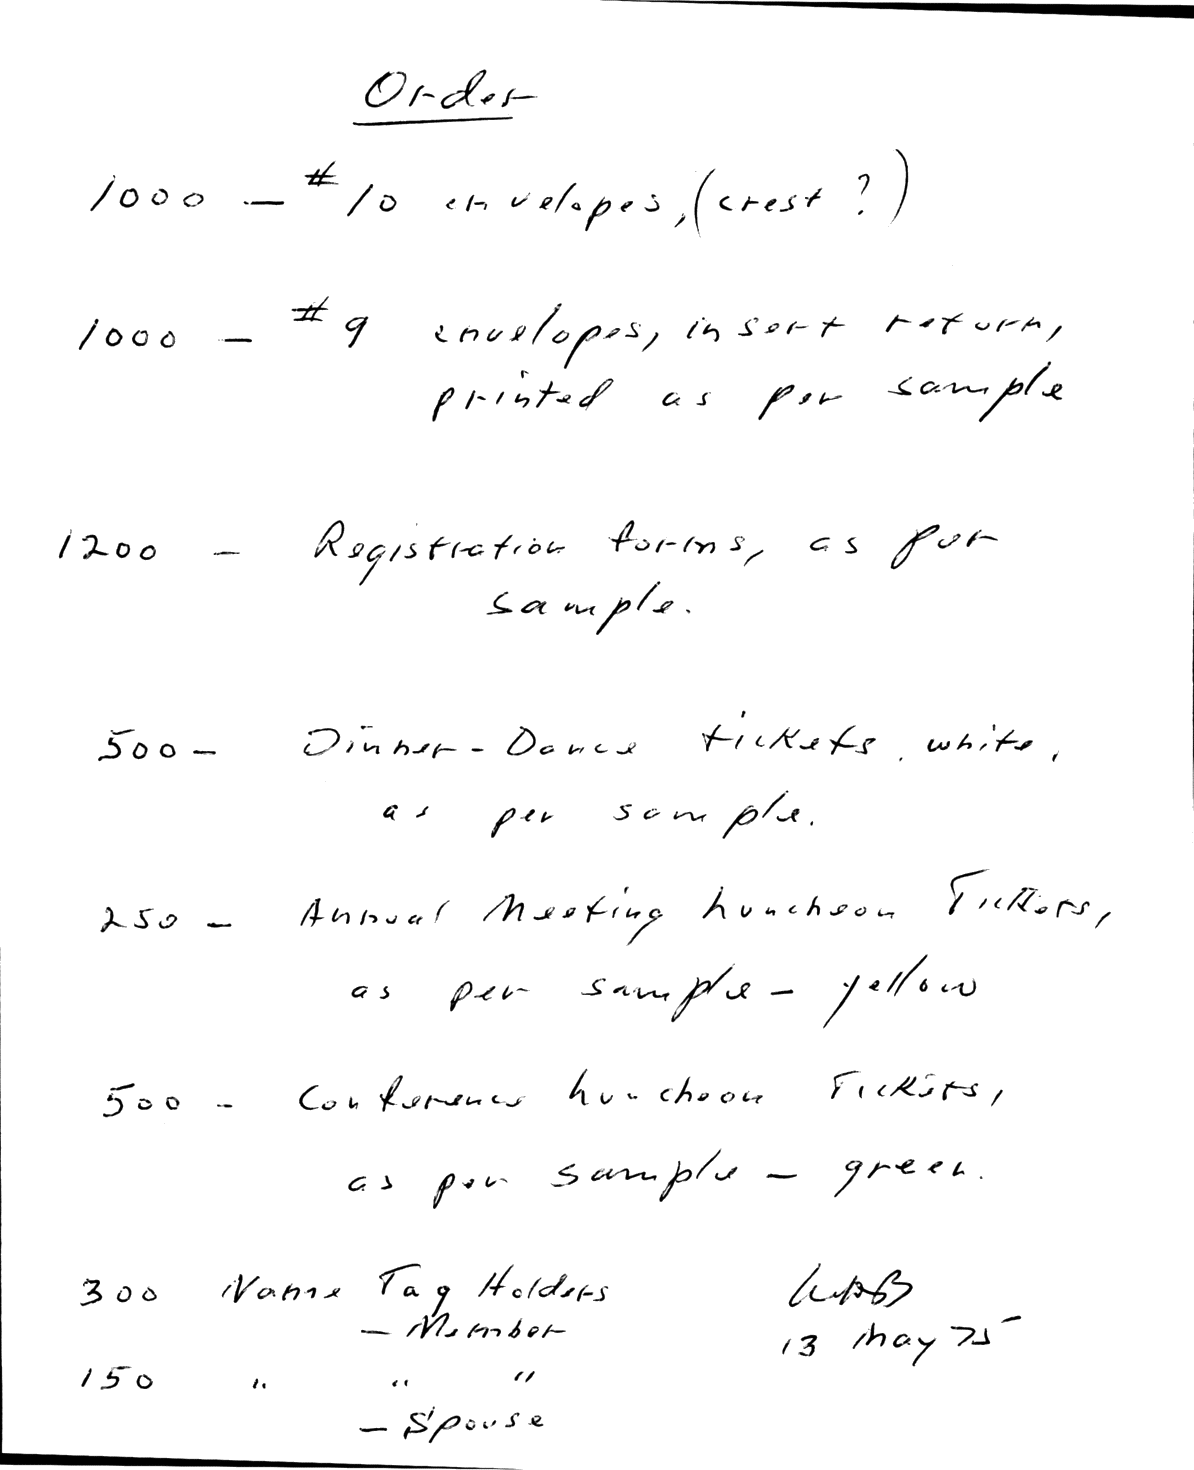 Order
1000 - #10 envelopes, (crest ?)
1000 - #9 envelopes, insert return,
printed as per sample
1200 - Registration forms, as per
sample.
500 - Dinner-Dance tickets, white,
as per sample.
250 - Annual Meeting Luncheon Tickets,
as per sample - yellow
500 - Conference Luncheon Tickets,
as per sample - green.
300 Name Tag Holders
- Member
150 " " "
- Spouse
13 May 75